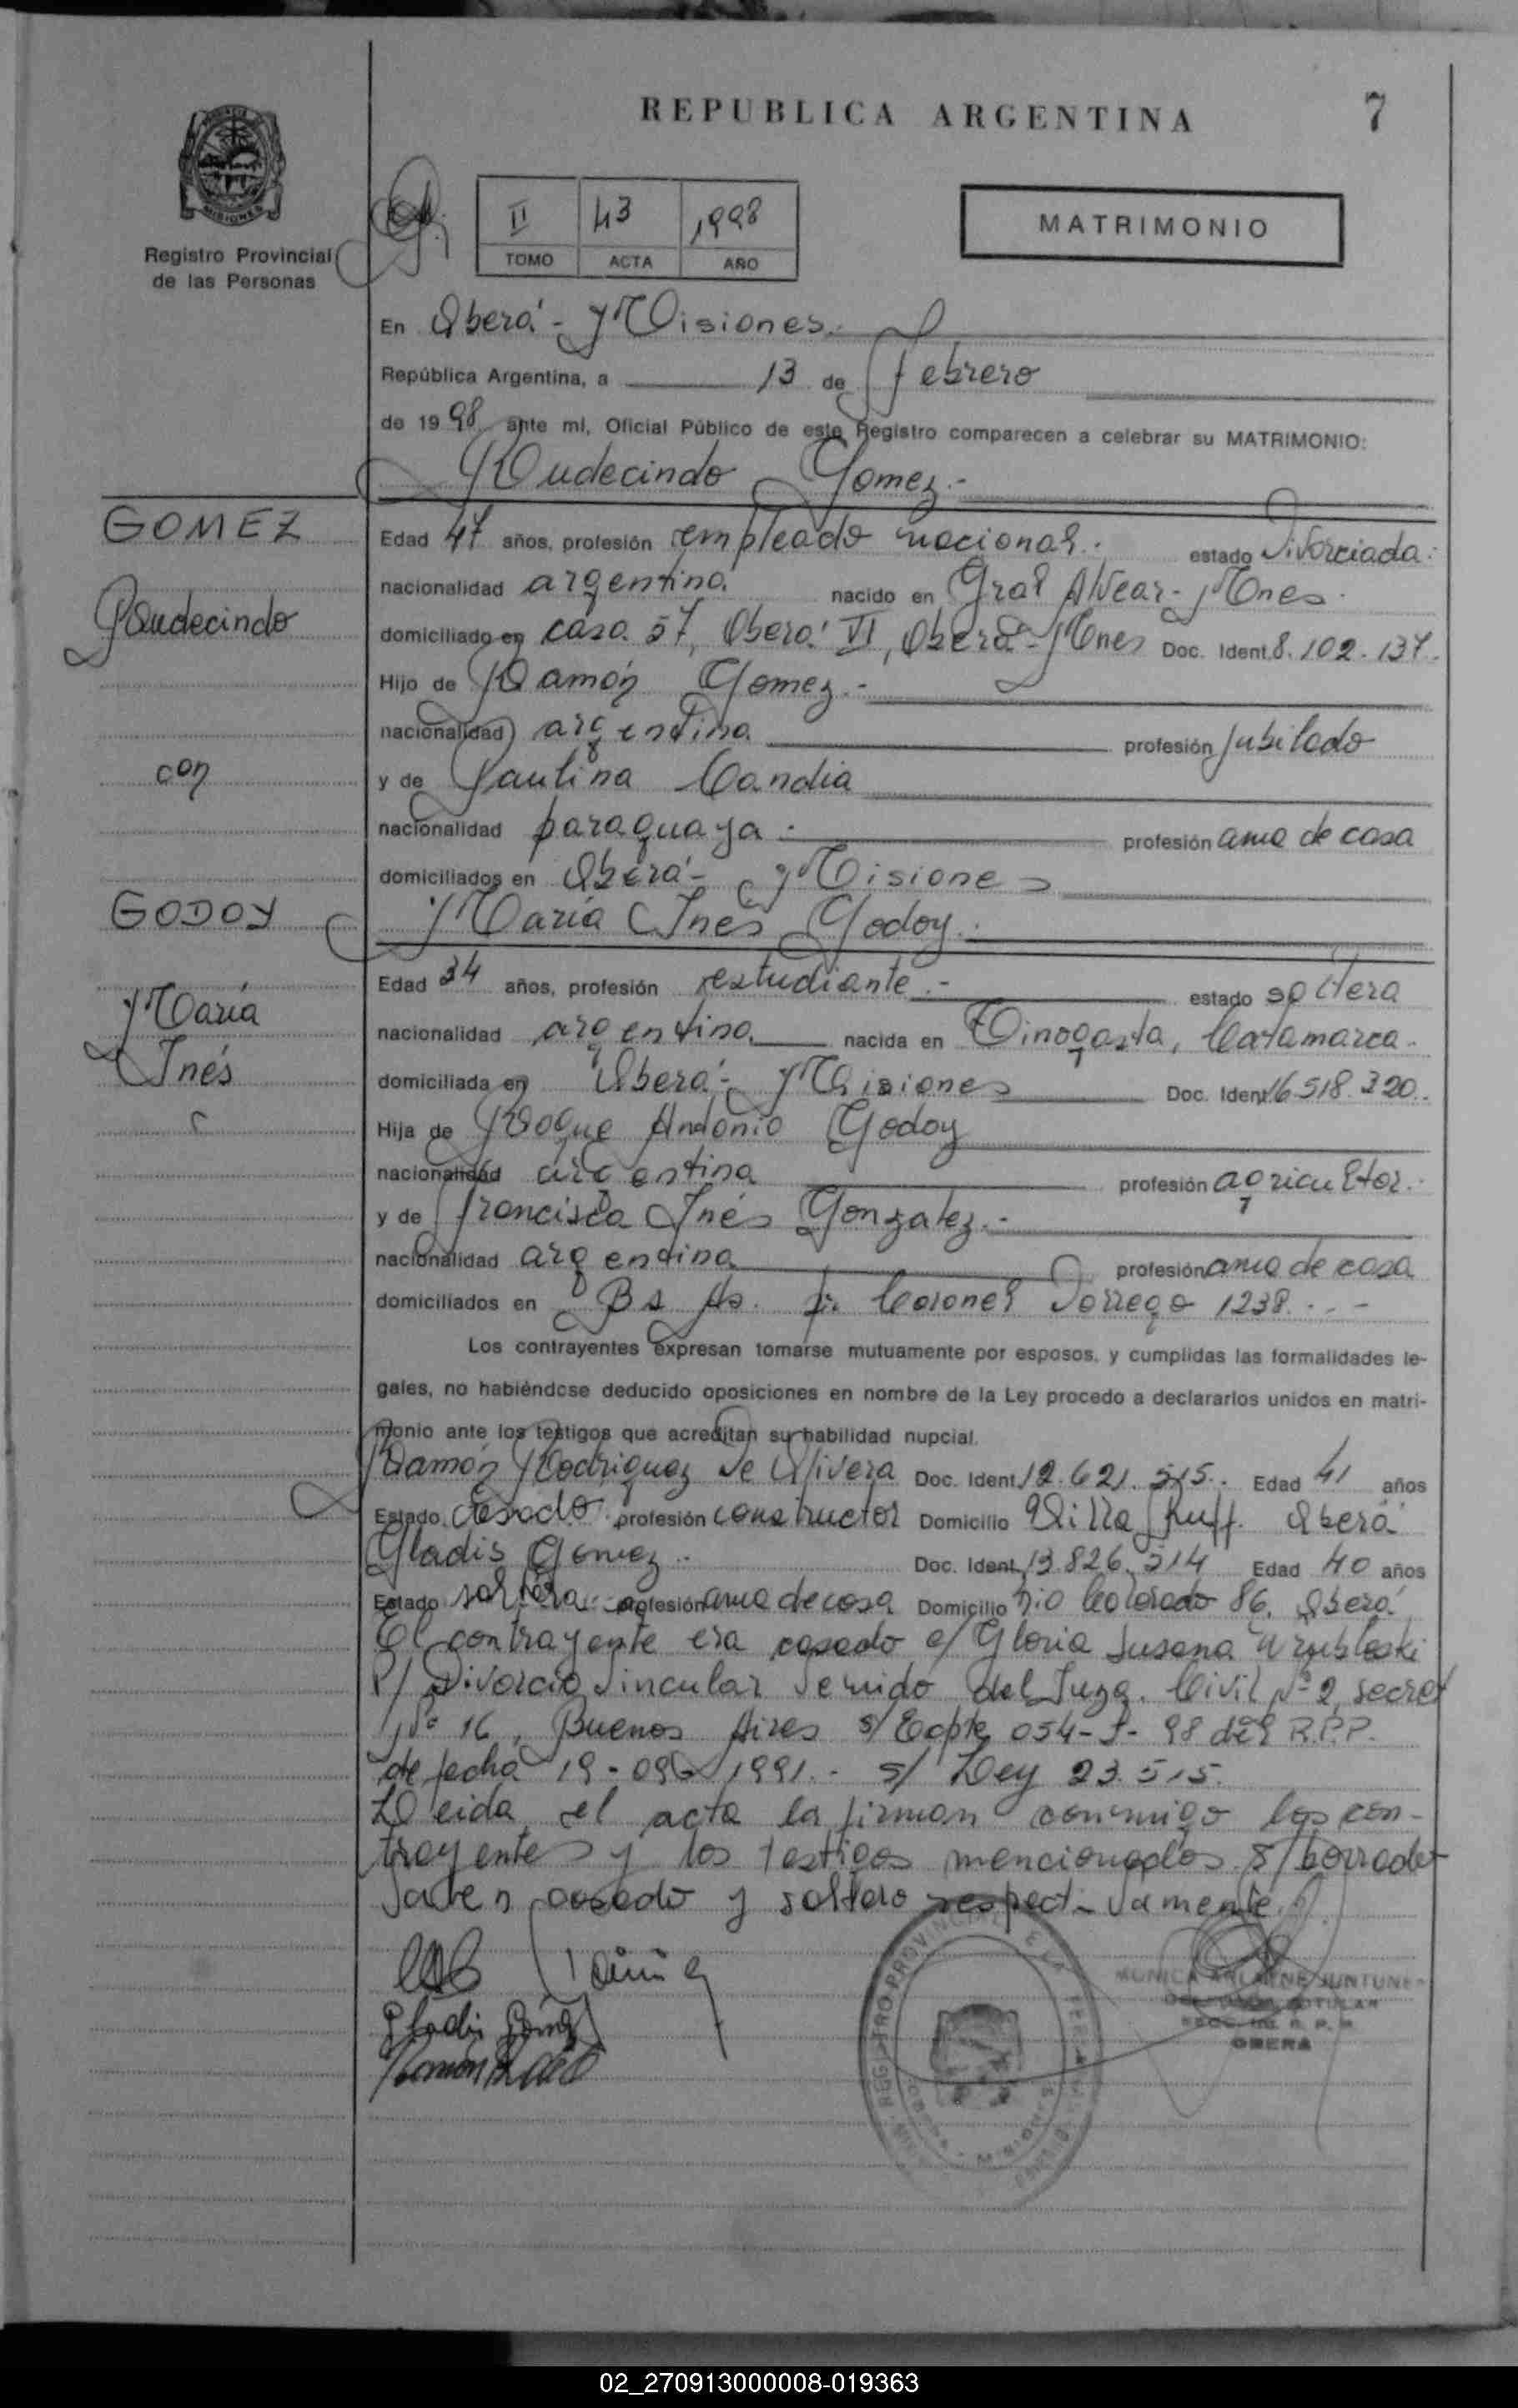 REPUBLICA ARGENTINA
7
MISIONES
Registro Provincial
de las Personas
II 43 1998
TOMO ACTA AÑO
MATRIMONIO
En Oberá - Misiones.-
República Argentina, a 13 de febrero
de 1998 ante mí, Oficial Público de este Registro comparecen a celebrar su MATRIMONIO:
Rudecindo Gomez.-
GOMEZ
Rudecindo
con
GODOY
María
Inés
Edad 47 años, profesión empleado nacional. estado Divorciada.
nacionalidad argentina nacido en Gral Alvear - Mnes.
domiciliado en casa 57, Oberá VI, Oberá - Mnes Doc. Ident. 8.102.137.
Hijo de Ramón Gomez.-
nacionalidad argentina profesión jubilado
y de Paulina Candia
nacionalidad paraguaya.- profesión ama de casa
domiciliados en Oberá - Misiones
María Inés Godoy.-
Edad 34 años, profesión estudiante.- estado soltera
nacionalidad argentina nacida en Tinogasta, Catamarca.
domiciliada en Oberá - Misiones Doc. Ident. 16.518.320.
Hija de Roque Antonio Godoy
nacionalidad argentina profesión agricultor.
y de Francisca Inés Gonzalez.-
nacionalidad argentina profesión ama de casa
domiciliados en Bs As. Coronel Dorrego 1238. . . -
Los contrayentes expresan tomarse mutuamente por esposos, y cumplidas las formalidades le-
gales, no habiéndose deducido oposiciones en nombre de la Ley procedo a declararlos unidos en matri-
monio ante los testigos que acreditan su habilidad nupcial.
Ramón Rodriguez De Olivera Doc. Ident. 12.621.515. Edad 41 años
Estado casado profesión constructor Domicilio Villa Ruff. Oberá
Gladis Gomez.- Doc. Ident. 13.826.314 Edad 40 años
Estado soltera profesión ama de casa Domicilio Rio Colorado 86. Oberá
El contrayente era casado c/ Gloria Susana
P/ Divorcio Vincular Venido del Juzg. Civil Nº 2, secret
Nº 16, Buenos Aires s/ Expte 054-J-98 del R.P.P.
de fecha 19-09-1991.- s/ Ley 23.515.
Leida el acta la firman conmigo los con-
trayentes y los testigos mencionados. S/ borrado
valen casado y soltero respectivamente.
Gladis Gómez
Ramón R. de O
MONICA JUNTUNEN
TITULAR
R. P. P.
OBERA
02_270913000008-019363